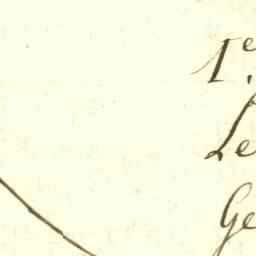 1e.
Le
Ge